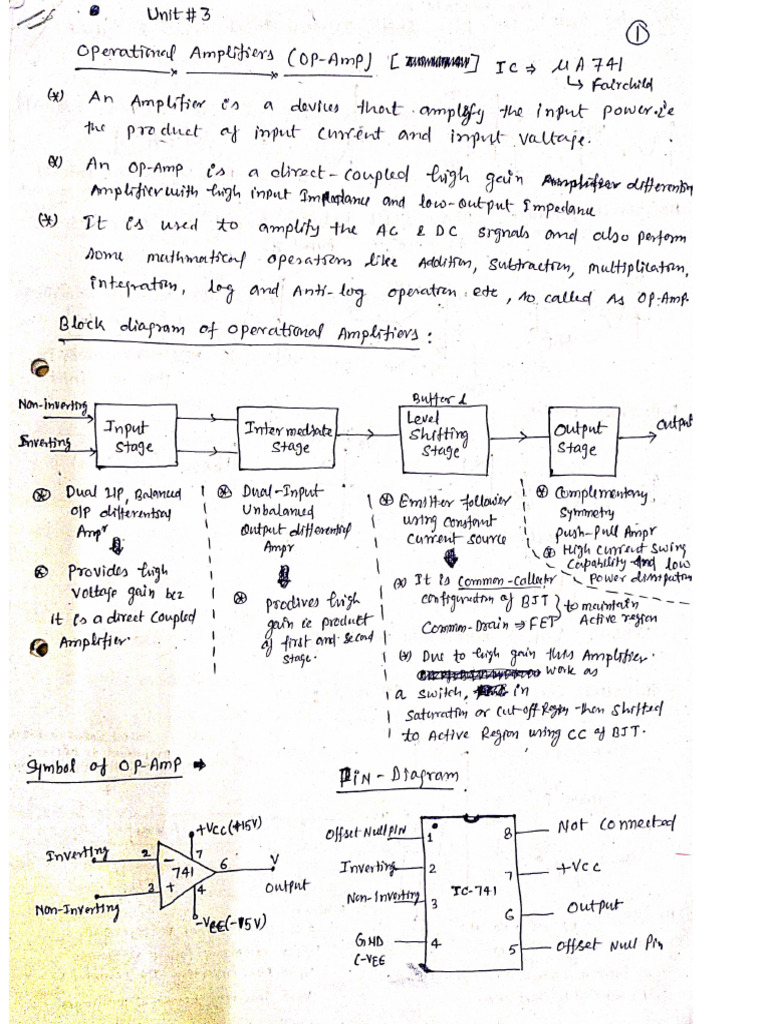 Unit # 3
1
Operational Amplifiers (OP-AmP) [ ] IC ⇒ μA741
↳ Fairchild
(*) An Amplifier is a devices that amplify the input power.ie
the product of input current and input voltage.
(*) An OP-Amp is a direct-coupled high gain differential
Amplifier with high input Impedance and low-output Impedance
(*) It is used to amplify the AC & DC signals and also perform
some mathmatical operations like Addition, subtraction, multiplication,
integration, log and Anti-log operation etc, so called as OP-Amp.
Block diagram of operational Amplifiers :
Non-inverting
Inverting
Input
Stage
Intermediate
Stage
Buffer &
Level
Shifting
Stage
Output
Stage
Output
(*) Dual I/P, Balanced
O/P differential
Ampr
(*) Provides high
voltage gain bcz
it is a direct coupled
Amplifier.
(*) Dual-Input
Unbalanced
Output differential
Ampr
(*) Provides high
gain ie product
of first and second
stage.
(*) Emitter follower
using constant
current source
(*) It is Common-Collector
configuration of BJT
Common-Drain ⇒ FET
to maintain
Active region
(*) Due to high gain this Amplifier.
work as
a switch, in
saturation or cut-off Region then shifted
to Active Region using CC of BJT.
(*) Complementary
Symmetry
Push-Pull Ampr
(*) High Current Swing
Capability and low
Power dissipation
Symbol of OP-Amp ➡
Inverting
2
−
Non-Inverting
3
+
741
+Vcc(+15V)
7
6
V
Output
4
-VEE(-15V)
PIN-Diagram
Offset Null PIN
1
Inverting
2
Non-Inverting
3
GND
(-VEE
4
IC-741
8
Not Connected
7
+Vcc
6
Output
5
Offset Null Pin